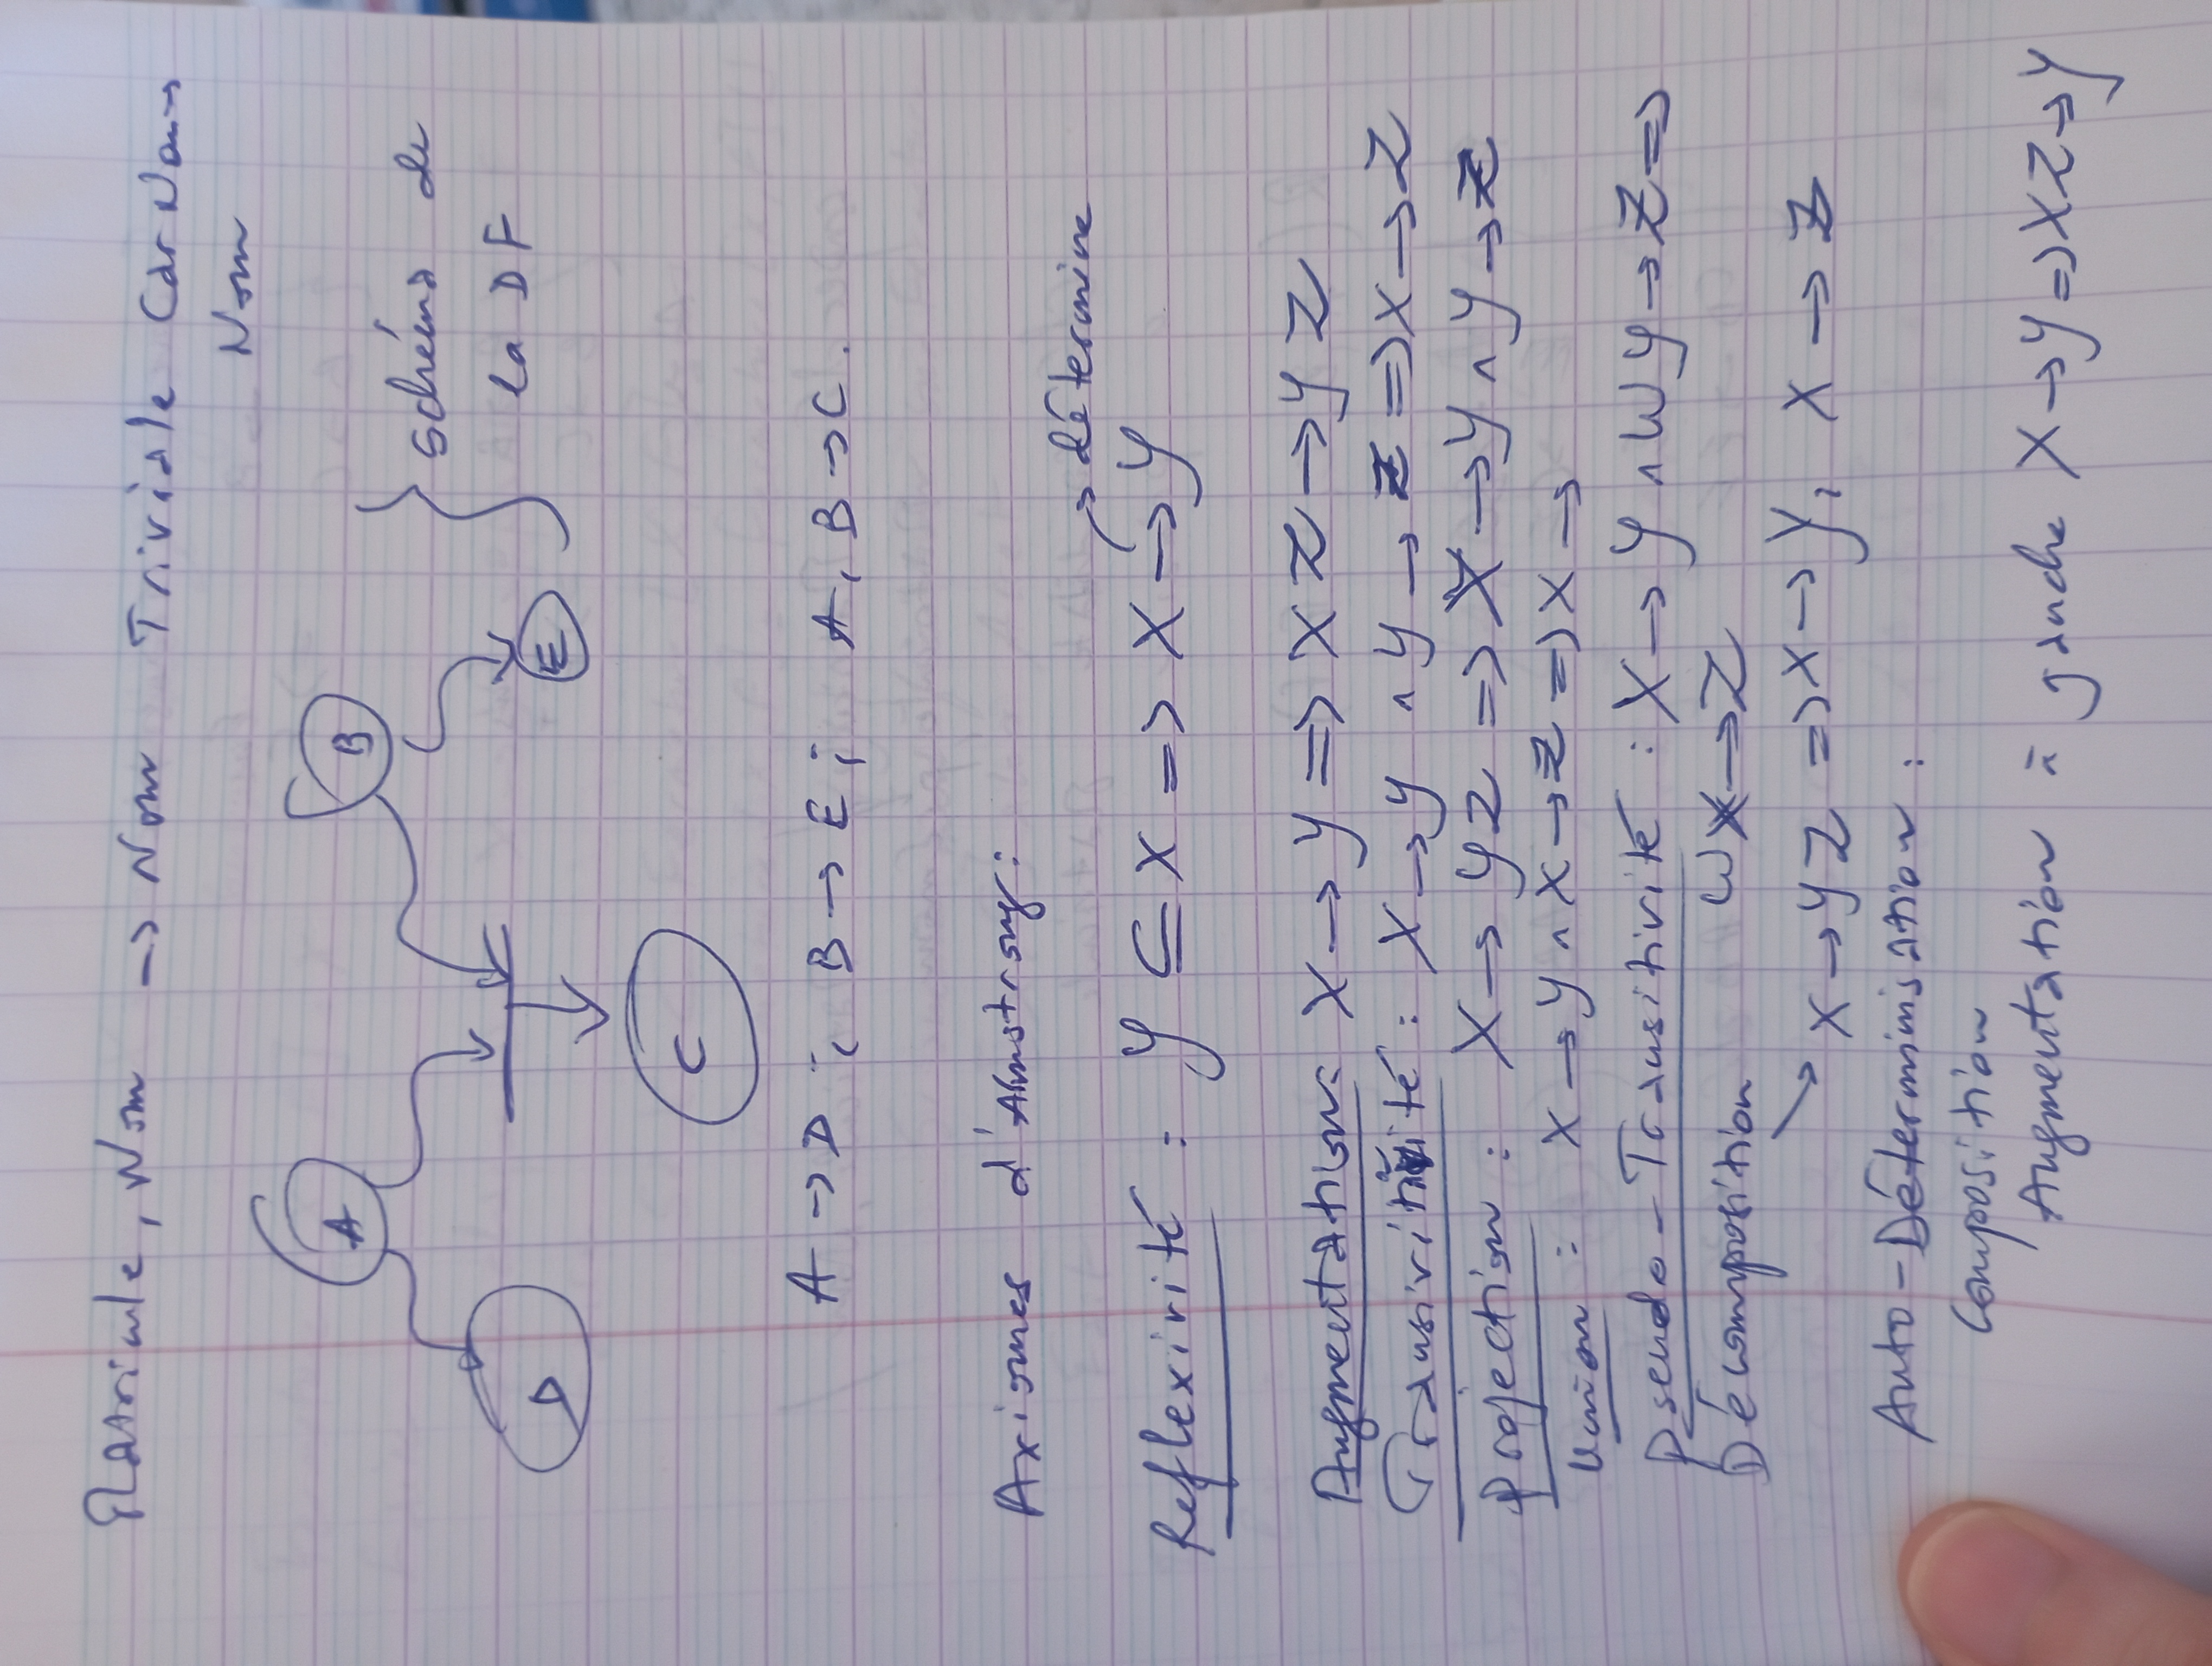 Matricule, Nom → Nom Triviale Car Nom →
Nom
A B
D E
C
schéma de
la DF
A → D ; B → E ; A, B → C.
Axiomes d'Armstrong :
→ détermine
Reflexivité : Y ⊆ X => X → Y
Augmentation : X → Y => X Z → Y Z
Transitivité : X → Y ∧ Y → Z => X → Z
Projection : X → YZ => X → Y ∧ Y → Z
Union : X → Y ∧ X → Z => X →
Pseudo-Transitivité : X → Y ∧ WY → Z =>
WX → Z
Décomposition
→ X → YZ => X → Y, X → Z
Auto-Déterminisation :
Composition
Augmentation à gauche X → Y => XZ → Y